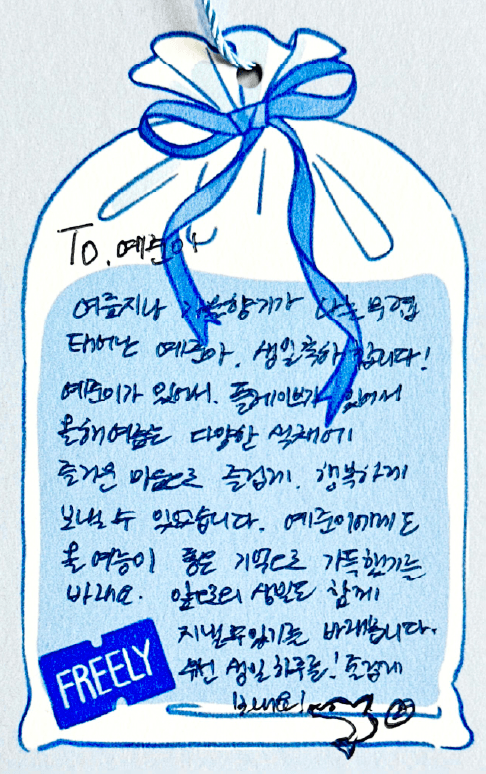 To. 예준아
여름지나 가을향기가 나는 무렵
태어난 예준아. 생일축하합니다!
예준이가 있어서. 플레이브가 있어서
올해여름은 다양한 색채에
즐거운 마음으로 즐겁게. 행복하게
보낼 수 있었습니다. 예준이에게도
올 여름이 좋은 기억으로 가득했기를
바래요. 앞으로의 생일도 함께
지낼 수 있기를 바래봅니다.
생일 하루를! 즐겁게
보내요!
FREELY